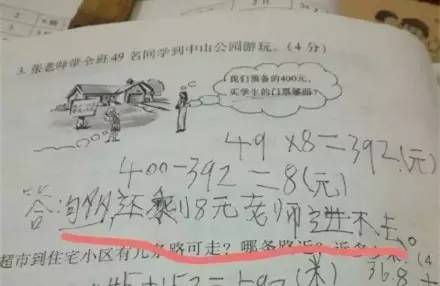 3. 张老师带全班49名同学到中山公园游玩。(4分)
我们预备的400元,
买学生的门票够吗?
49×8=392(元)
400-392=8(元)
答:够,还剩8元老师进不去。
超市到住宅小区有几条路可走?哪条路近?近多少米?(4
36.8
(米)